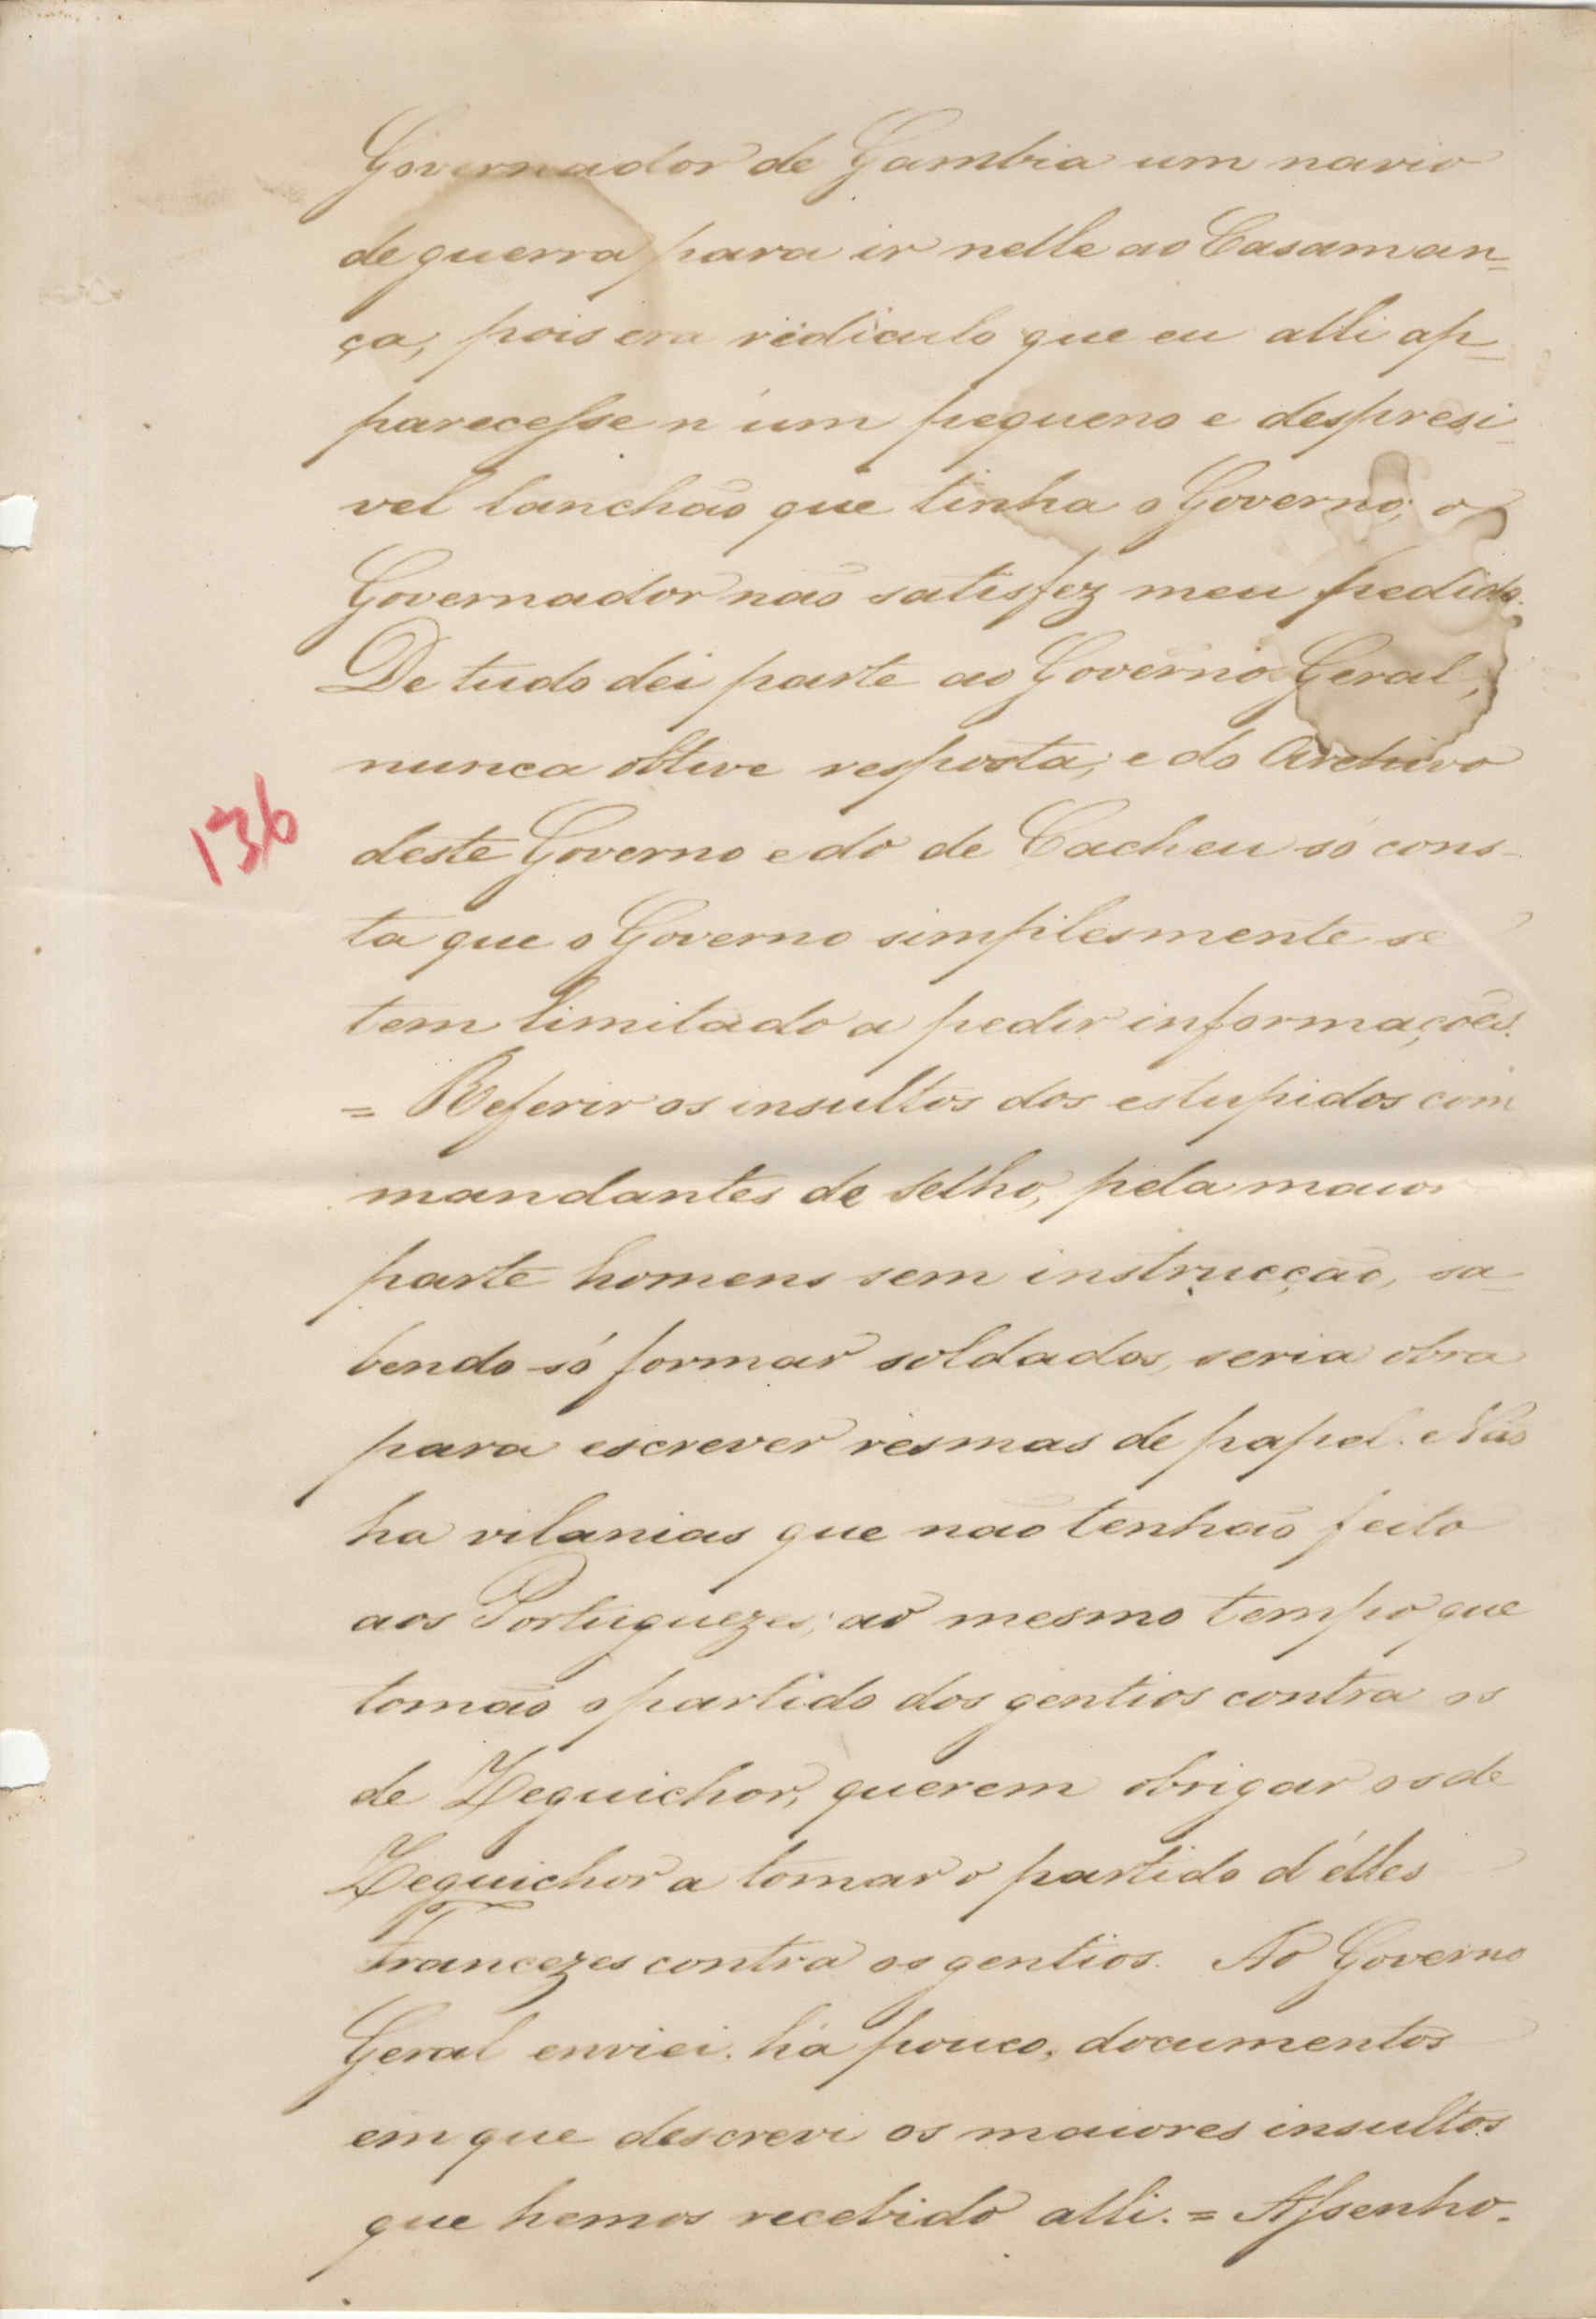 Governador de Gambia um navio
de guerra para ir nelle ao Casaman=
ça, pois era ridiculo que eu alli ap=
parecesse n'um pequeno e despresi=
vel lanchão que tinha o Governo; o
Governador não satisfez meu pedido.
De tudo dei parte ao Governo Geral,
nunca obtive resposta; e do Archivo
deste Governo e do de Cacheu só cons-
ta que o Governo simplesmente se
tem limitado a pedir informações.
= Referir os insultos dos estupidos com
mandantes de Selho, pela maior
parte homens sem instrucção, sa=
bendo só formar soldados, seria obra
para escrever resmas de papel. Não
ha vilanias que não tenhão feito
aos Portuguezes; ao mesmo tempo que
tomão o partido dos gentios contra os
de Zeguichor, querem obrigar os de
Zeguichor a tomar o partido d'elles
Francezes contra os gentios. Ao Governo
Geral enviei, há pouco, documentos
em que descrevi os maiores insultos
que hemos recebido alli. = Assenho-
136